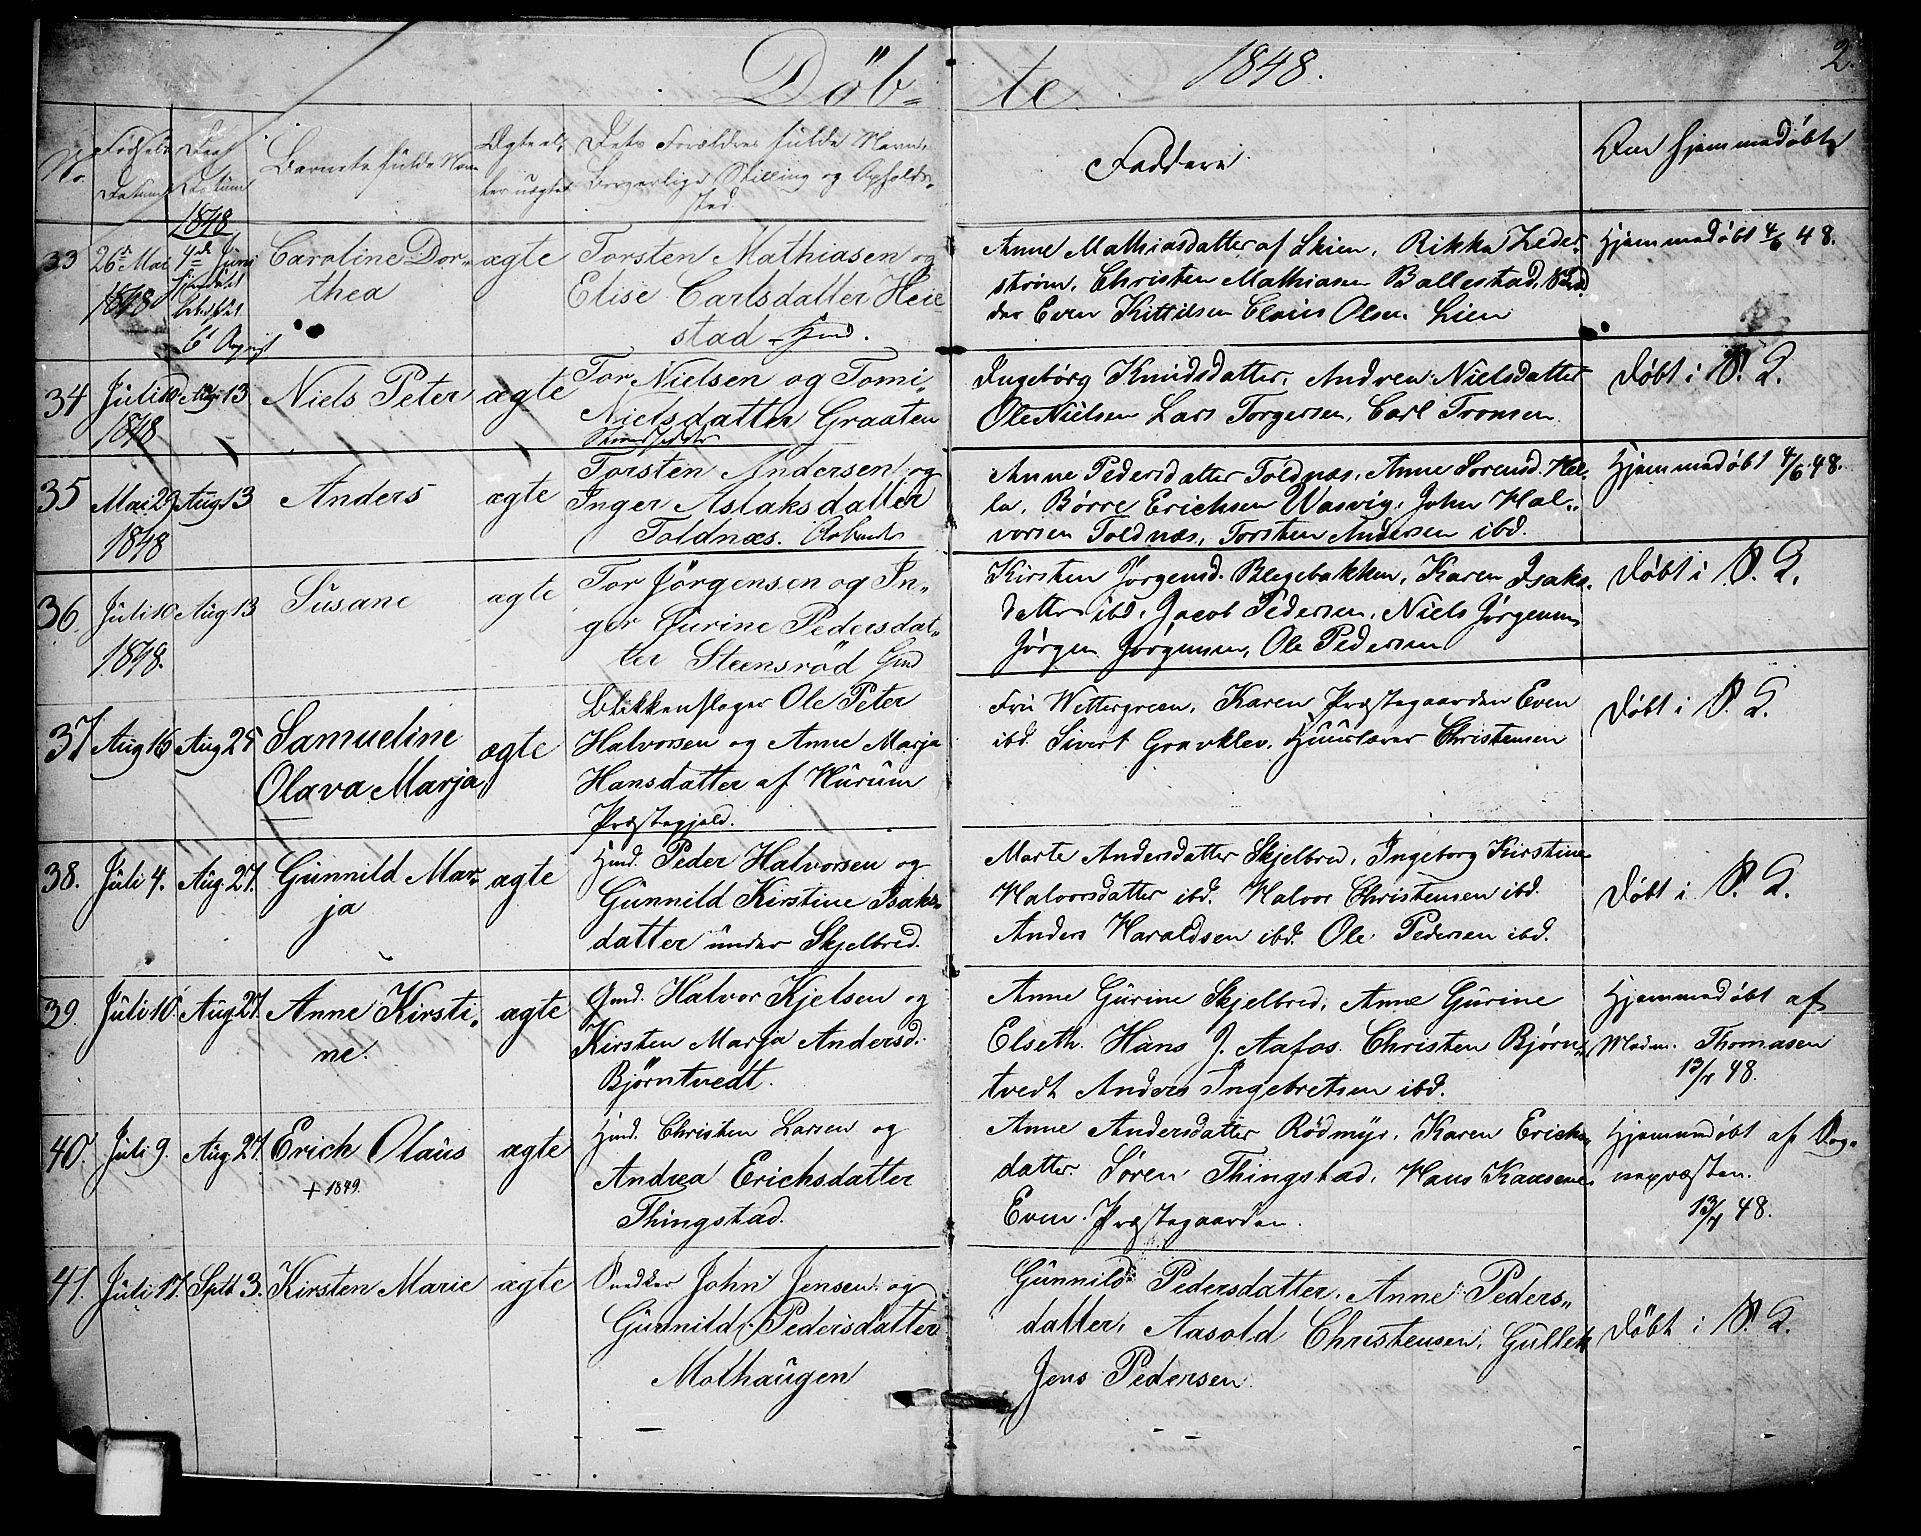 Döb- te 1848. 2.
No.
Fødsels Datum
Daab Datum
Barnets fulde Navn
Ægte el- ler uægte
Dets Forældres fulde Navn,
Borgerlige Stilling og Opholds-
sted.
Faddere
Om hjemmedøbt
1848
33 26de Mai 1848. 4de Juni
6te August
Caroline Dor-
thea
ægte
Torsten Mathiasen og
Elise Carlsdatter Heie
stad
Anne Mathiasdatter af Skien, Rikka Zeder
strøm, Christen Mathiasen Ballestad,
Even Kittilsen Claus Olsen Lien
Hjemmedøbt 4/6 48.
34 Juli 10 1848 Aug 13
Niels Peter
ægte
Tor Nielsen og Tomi-
Nielsdatter Graaten
Ingeborg Knudsdatter, Andrea Nielsdatter
Ole Nielsen Lars Torgersen, Carl Tronsen
Døbt i K.
35 Mai 29 1848 Aug 13
Anders
ægte
Torsten Andersen og
Inger Aslaksdatter
Toldnæs.
Anne Pedersdatter Toldnæs, Anne Sorensd. Hel-
la, Börre Erichsen Wasvig, John Hal-
vorsen Toldnæs, Torsten Andersen ibd.
Hjemmedøbt 4/6 48.
36. Juli 10 1848. Aug 13
Susane
ægte
Tor Jörgensen og In-
ger Gurine Pedersdat-
ter Steensröd
Kirsten Jörgensd. Blegebakken, Karen Isaks-
datter ibd, Jacob Pedersen, Niels Jörgensen
Jörgen Jörgensen, Ole Pedersen
Døbt i K.
37 Aug 16 Aug 25
Samueline
Olava Marja
ægte
Blikkenslager Ole Peter
Halvorsen og Anne Marja
Hansdatter af Hurum
Præstegjeld.
Fru Wettergreen, Karen Præstegaarden Even
ibd. Sivert Gravklev, Huuslærer Christensen
Døbt i K.
38. Juli 4. Aug. 27.
Gunnild Mar-
ja
ægte
Huusmd. Peder Halvorsen og
Gunnild Kirstine Isaks-
datter under Skjelbred.
Marte Andersdatter Skjelbred, Ingeborg Kirstine
Halvorsdatter ibd. Halvor Christensen ibd.
Anders Haraldsen ibd. Ole Pedersen ibd.
Døbt i K.
39. Juli 10. Aug 27.
Anne Kirsti-
ne.
ægte
Gmd. Halvor Kjelsen og
Kirsten Marja Andersd.
Björntvedt.
Anne Gurine Skjelbred, Anne Gurine
Elseth. Hans J. Aafos. Christen Björn-
tvedt Anders Ingebretsen ibd.
Hjemmedøbt af
Madm. Thomasen
13/7 48.
40. Juli 9. Aug. 27
Erich Olaus
+ 1849.
ægte
Christen Larsen og
Andrea Erichsdatter
Thingstad.
Anne Andersdatter Rödmyr, Karen Erichs-
datter Sören Thingstad, Hans
Even Præstegaarden.
Hjemmedøbt af Sog-
nepræsten.
13/7 48.
41. Juli 17. Sptb 3.
Kirsten Marie
ægte
Snedker John Jensen og
Gunnild Pedersdatter
Molhaugen
Gunnild Pedersdatter, Anne Peders-
datter, Aasold Christensen, Gullek
Jens Pedersen.
Døbt i K.